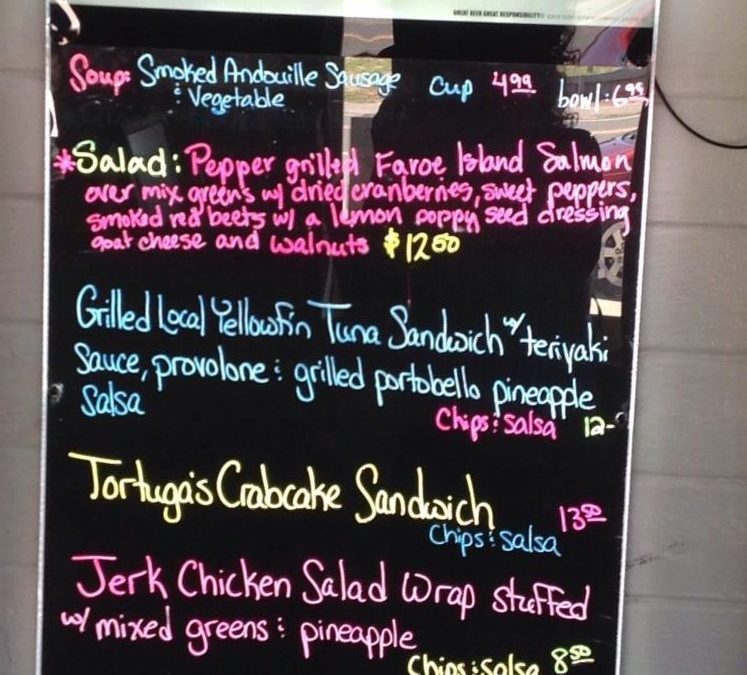 Soup: Smoked Andouille Sausage Cup 4.99 bowl: 6.99
: Vegetable
*Salad: Pepper grilled Faroe Island Salmon
over mix greens w/ dried cranberries, sweet peppers,
smoked red beets w/ a lemon poppy seed dressing
goat cheese and walnuts $12.50
Grilled Local Yellowfin Tuna Sandwich w/ teriyaki
Sauce, provolone : grilled portobello pineapple
Salsa
Chips : Salsa 12-
Tortuga's Crabcake Sandwich
Chips : Salsa 13.50
Jerk Chicken Salad Wrap Stuffed
w/ mixed greens : pineapple
Chips : Salsa 8.50